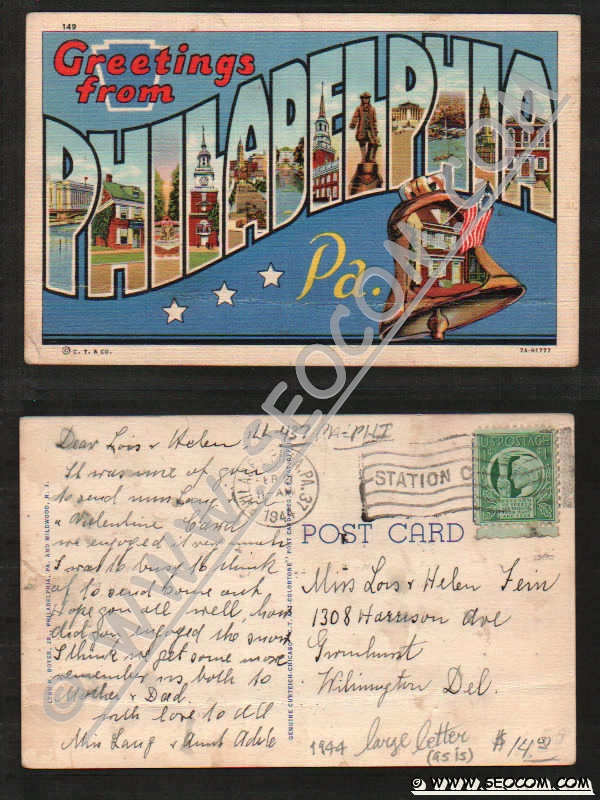 149
Greetings
from
PHILADELPHIA
Pa.
© C. T. & CO.
7A-H1777
WWW.SEOCOM.COM
Dear Lois & Helen
ILL-437 PA-PHI
It was nice of you
to send miss Lang
a Valentine Card
we engoged it very much
I was to busy to think
of to send some out
Hope you all well, how
did you engoged the snow
I think we get some more
remember us, both to
Mother & Dad.
with love to All
Miss Lang & Aunt Adele
PA. 37
STATION C
U.S. POSTAGE
POST CARD
Miss Lois & Helen Fein
1308 Harrison Ave
Wilmington Del.
1944 large letter
(as is)
$14.
PHILADELPHIA, PA. AND WILDWOOD, N. J.
GENUINE CURTEICH-CHICAGO "C. T. ART-COLORTONE" POST CARD
© WWW.SEOCOM.COM